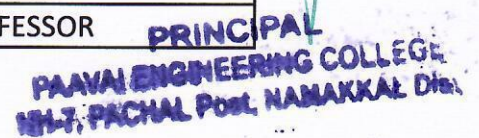 FESSOR
PRINCIPAL
PAAVAI ENGINEERING COLLEGE
NH-7, PACHAL Post, NAMAKKAL Dist.